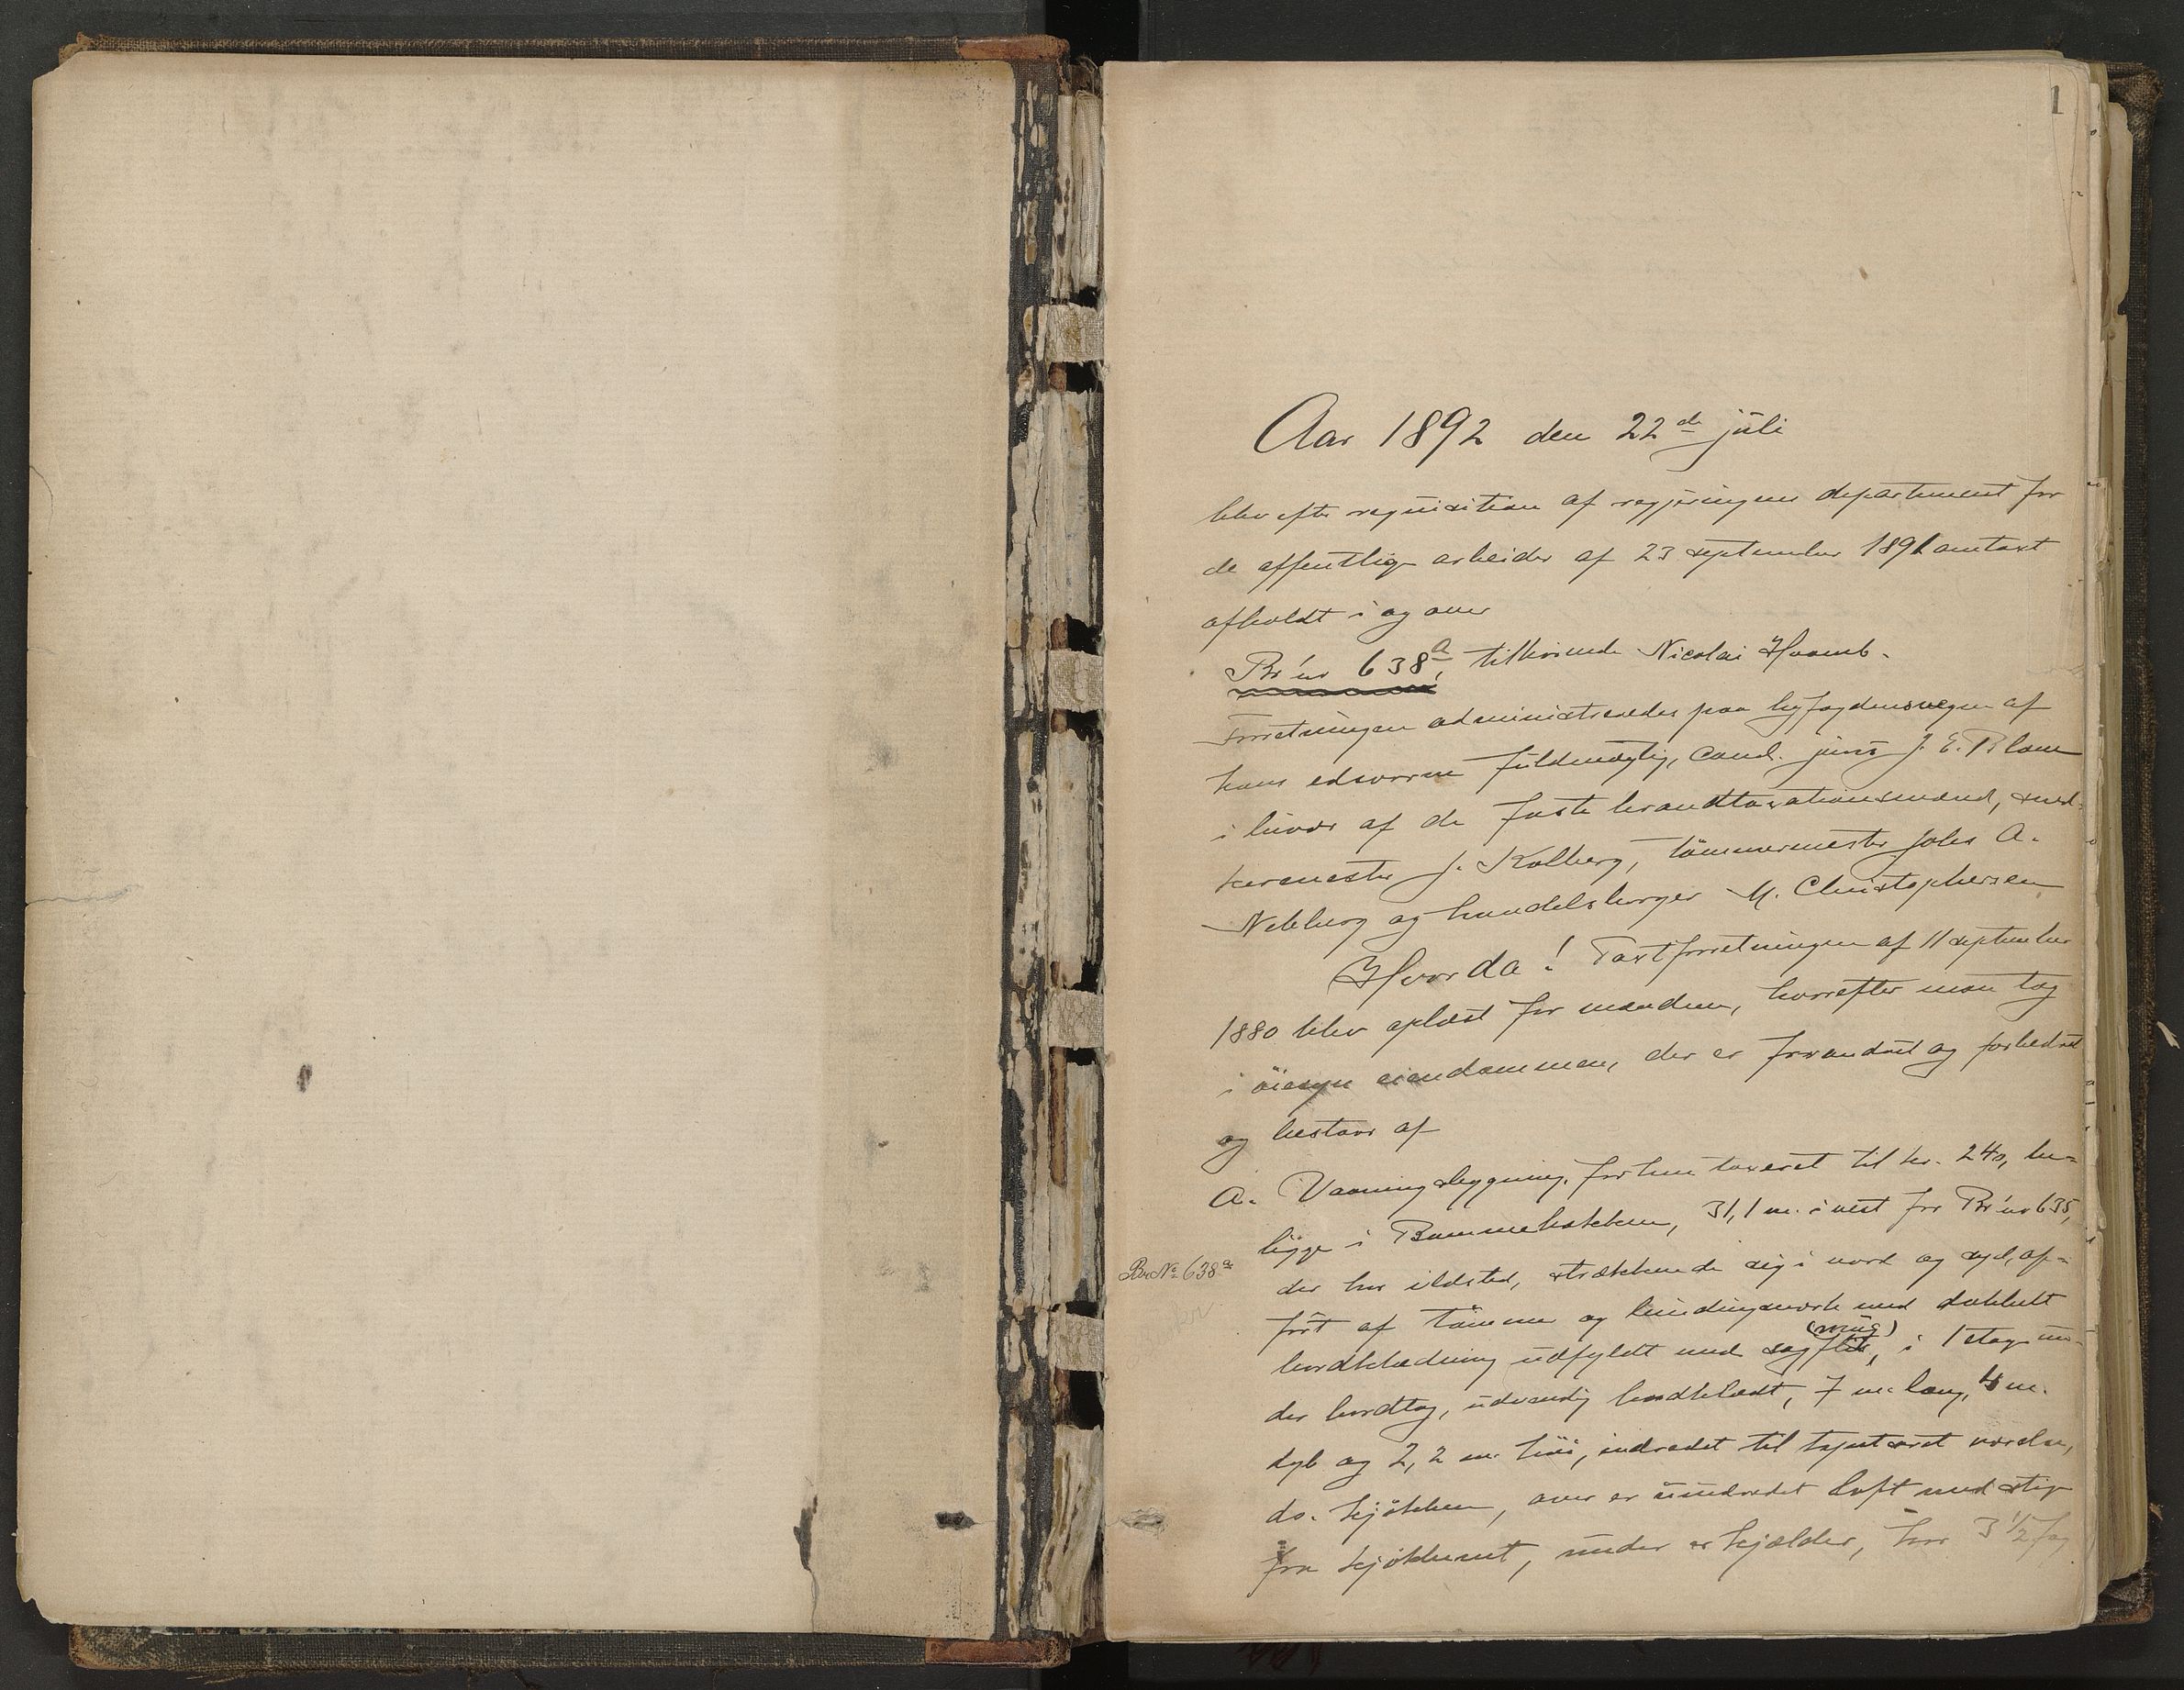 1
Aar 1892 den 22de juli
blev efter requisition af regjeringens departement for
de offentlige arbeider af 23 september 1891 omtaxt
afholdt i og over
Br. nr 638a, tilhørende Nicolai
Forretningen administreredes paa byfogdens vegne af
hans edsvorne fuldmægtig, cand. juris J. E. Blom
i hvær af de faste brandtaxationsmænd, sned-
kermester J. Kolberg, tømmermester Johs A.
og handelsborger M. Christophersen
Hvorda! Taxtforretningen af 11 september
1880 blev oplæst for mændene, hvorefter man tog
i øiesyn eiendommen, der er forandret og forbedret
og bestaar af
A. Vaaningsbygning, forhen taxeret til kr. 240, be-
ligge i 31,1 m. i vest for Br. nr 635,
Br. No 638a
der har ildsted, strækkende sig i nord og syd, op-
ført af tømmer og bindingsværk med dobbelt
bordklædning udfyldt med sagflis, (mug) i 1 etage un-
der bordtag, udvendig bordklædt, 7 m. lang, 4 m.
dyb og 2,2 m. høi, indredet til tapetseret værelse,
do. kjøkken, over er uindredet loft med stige
fra kjøkkenet, under er kjælder, har 3 1/2 fag